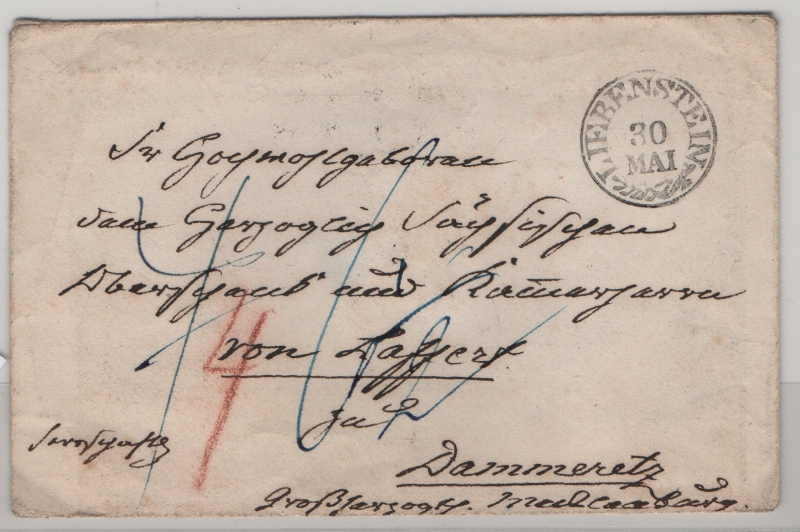 LIEBENSTEIN
30
MAI
Sr Hochwohlgeboren
dem Herzoglich Sächsischen
Oberschenk und Kammerherrn
von Laffert
zu
Dammeretz
Großherzogth. Mecklenburg.
4